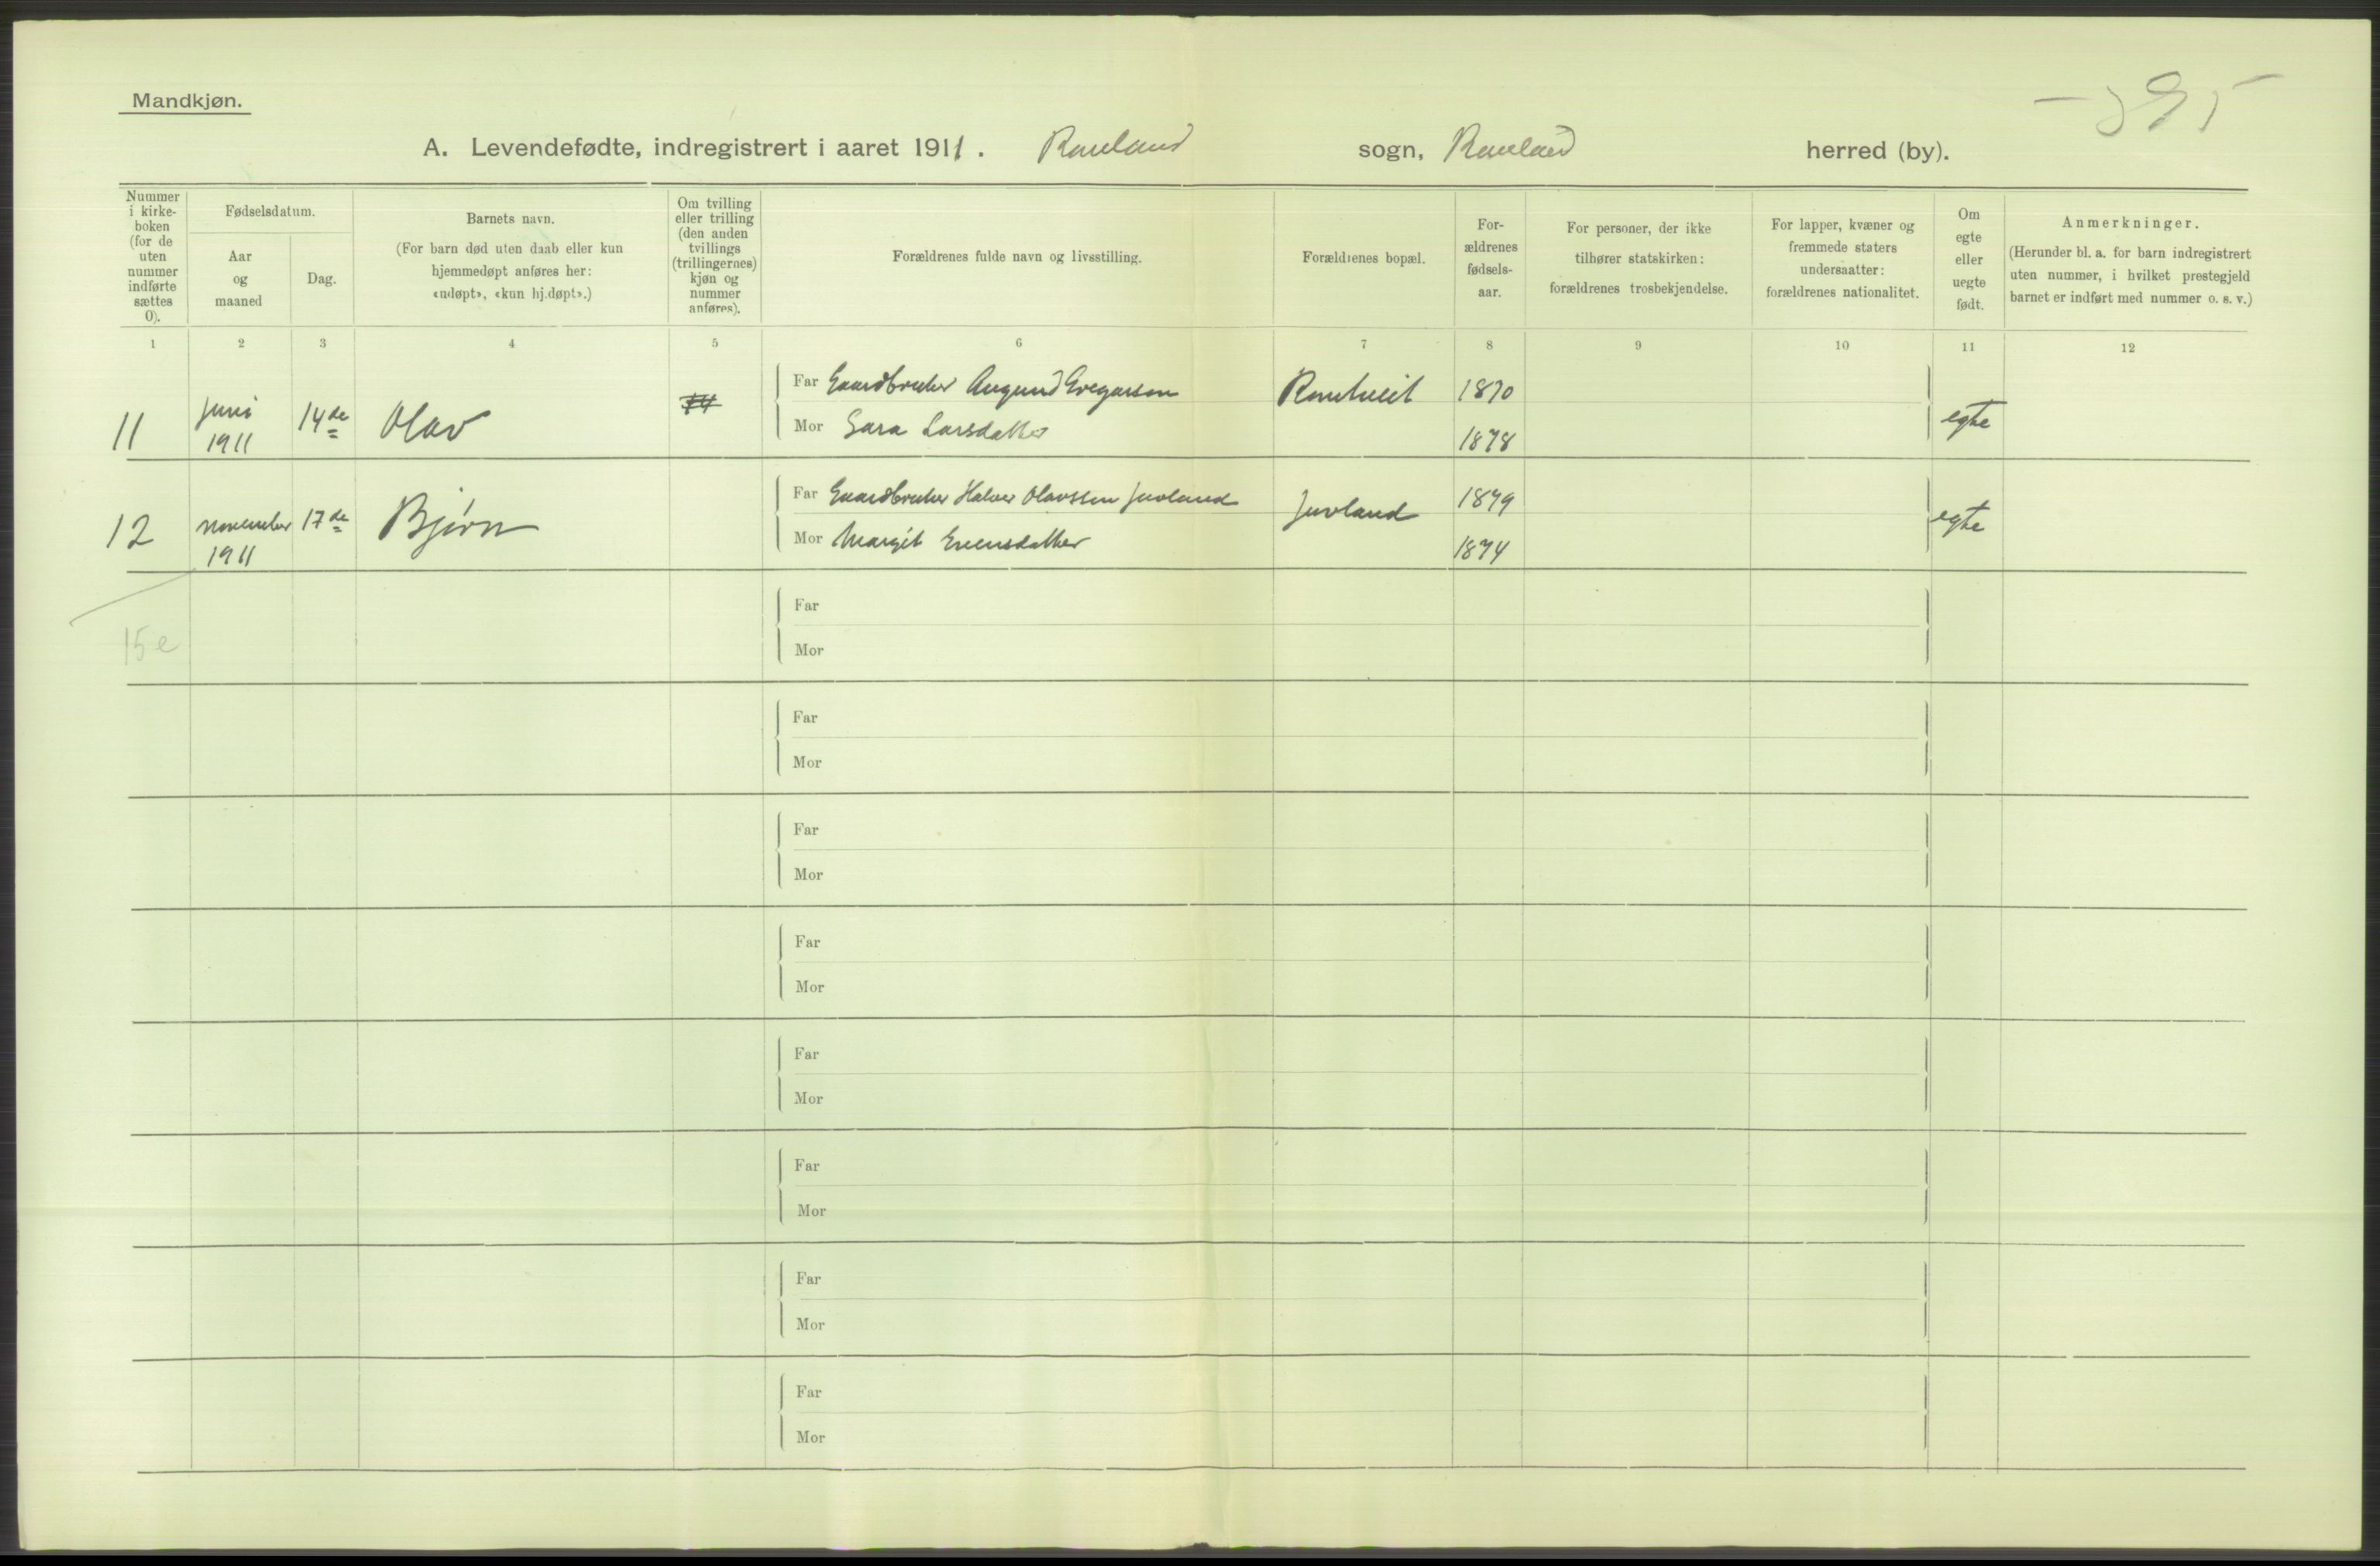 Mandkjøn.
A. Levendefødte, indregistrert i aaret 1911. Rauland sogn, Rauland herred (by).
Nummer i kirke-boken (for de uten nummer indførte sættes 0).
Fødselsdatum.
Aar og maaned
Dag.
Barnets navn.
(For barn død uten daab eller kun
hjemmedøpt anføres her:
«udøpt», «kun hj.døpt».)
Om tvilling
eller trilling
(den anden
tvillings
(trillingernes)
kjøn og
nummer
anføres).
Forældrenes fulde navn og livsstilling.
Forældrenes bopæl.
For-
ældrenes
fødsels-
aar.
For personer, der ikke
tilhører statskirken:
forældrenes trosbekjendelse.
For lapper, kvæner og
fremmede staters
undersaatter:
forældrenes nationalitet.
Om
egte
eller
uegte
født.
Anmerkninger.
(Herunder bl. a. for barn indregistrert
uten nummer, i hvilket prestegjeld
barnet er indført med nummer o. s. v.)
1 2 3 4 5 6 7 8 9 10 11 12
Far Gaardbruker Augund Gregarson 1870
11 Juni 1911 14de Olav egte
Mor Sara Larsdatter 1878
Far Gaardbruker Halvor Olavssen Juvland Juvland 1879
12 november 1911 17de Bjørn egte
Mor Margit Svensdatter 1874
15 e
Far
Mor
Far
Mor
Far
Mor
Far
Mor
Far
Mor
Far
Mor
Far
Mor
Far
Mor